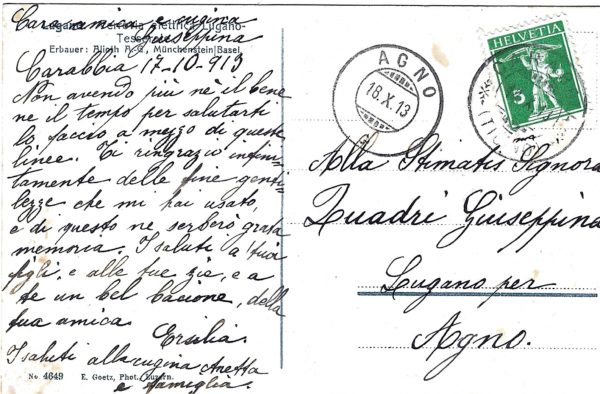 Cara amica e cugina
Giuseppina
Lugano elettrica Lugano-
Tesserete
Erbauer: Alioth A.-G., Münchenstein/Basel.
Carabbia 17-10-913
Non avendo più nè il bene
ne il tempo per salutarti
lo faccio a mezzo di queste
linee. Ti ringrazio infini-
tamente delle fine genti-
lezze che mi hai usato,
e di questo ne serberò grata
memoria. I saluti a tuoi
figli, e alle tue zie, e a
te un bel bacione, della
tua amica.
Ersilia.
I saluti alla cugina Anetta
e famiglia.
No. 4649 E. Goetz, Phot., Luzern.
AGNO
18.X.13
HELVETIA
5
Alla Stimatis Signora
Quadri Giuseppina
Lugano per
Agno.